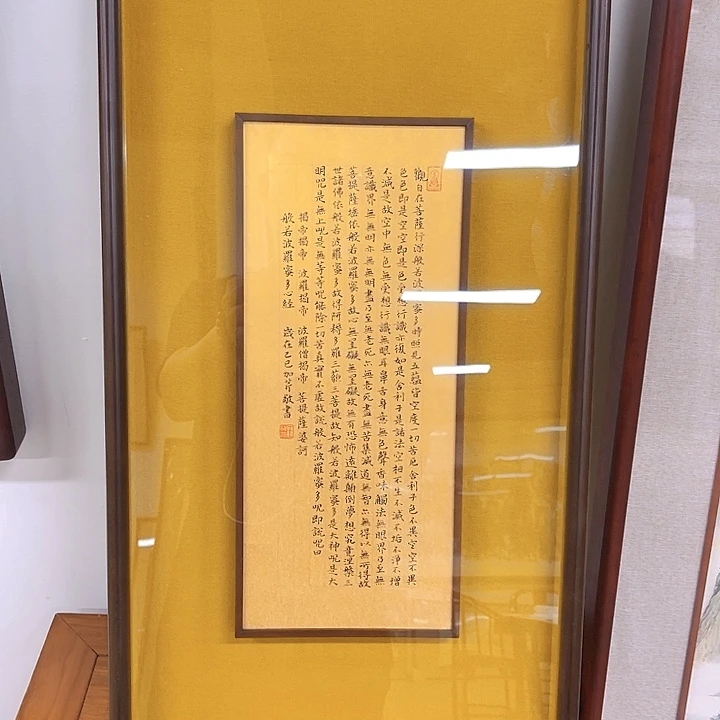 觀自在菩薩行深般若波羅蜜多時照見五蘊皆空度一切苦厄舍利子色不異空空不異
色色即是空空即是色受想行識亦復如是舍利子是諸法空相不生不滅不垢不淨不增
不減是故空中無色無受想行識無眼耳鼻舌身意無色聲香味觸法無眼界乃至無
意識界無無明亦無無明盡乃至無老死亦無老死盡無苦集滅道無智亦無得以無所得故
菩提薩埵依般若波羅蜜多故心無罣礙無罣礙故無有恐怖遠離顛倒夢想究竟涅槃三
世諸佛依般若波羅蜜多故得阿耨多羅三藐三菩提故知般若波羅蜜多是大神呪是大
明呪是無上呪是無等等呪能除一切苦真實不虛故說般若波羅蜜多呪即說呪曰
揭帝揭帝 波羅揭帝 波羅僧揭帝 菩提薩婆訶
般若波羅蜜多心經 歲在乙巳加芹敬書